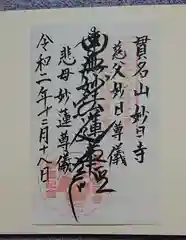 貫名山妙日寺
慈父妙日尊儀
南無妙法蓮華経
悲母妙蓮尊儀
令和二年十二月十八日